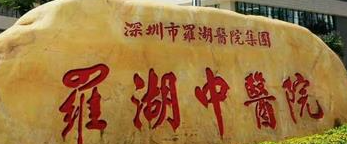 深圳市羅湖醫院集團
羅湖中醫院